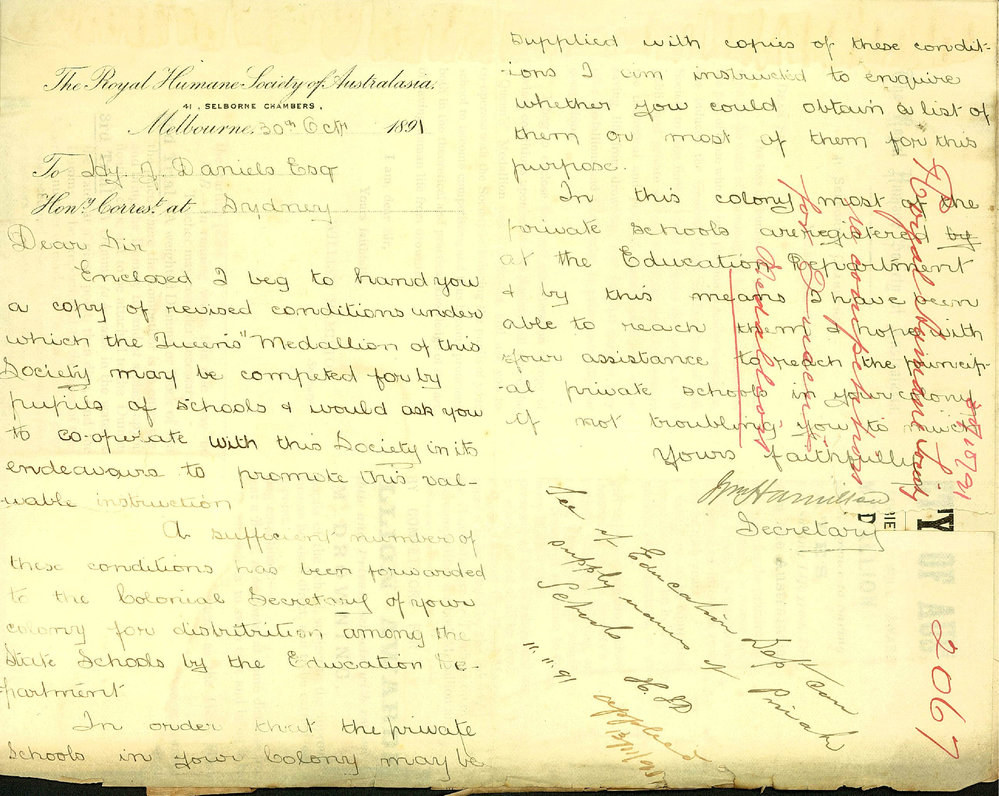 The Royal Humane Society of Australasia.
41, SELBORNE CHAMBERS,
Melbourne, 30th Octr 1891
To Hy. J. Daniels Esq
Hony. Correst. at Sydney
Dear Sir
Enclosed I beg to hand you
a copy of revised conditions under
which the Queens' Medallion of this
Society may be competed for by
pupils of schools & would ask you
to co-operate with this Society in its
endeavours to promote this val-
uable instruction
A sufficient number of
these conditions has been forwarded
to the Colonial Secretary of your
colony for distribition among the
State Schools by the Education De-
partment
In order that the private
Schools in your Colony may be
supplied with copies of these condit-
-ions I am instructed to enquire
whether you could obtain a list of
them or most of them for this
purpose.
In this colony most of the
private schools are registered by
at the Education Department
& by this means I have been
able to reach them & hope with
your assistance to reach the princip-
al private schools in your colony
if not troubling you to much
Yours faithfully
Hamilton
Secretary
Royal Humane Society
competition
for Queen's
Medallion
See if Education Dept can
supply names of Private
Schools H.J.D
11.11.91
applied
2067